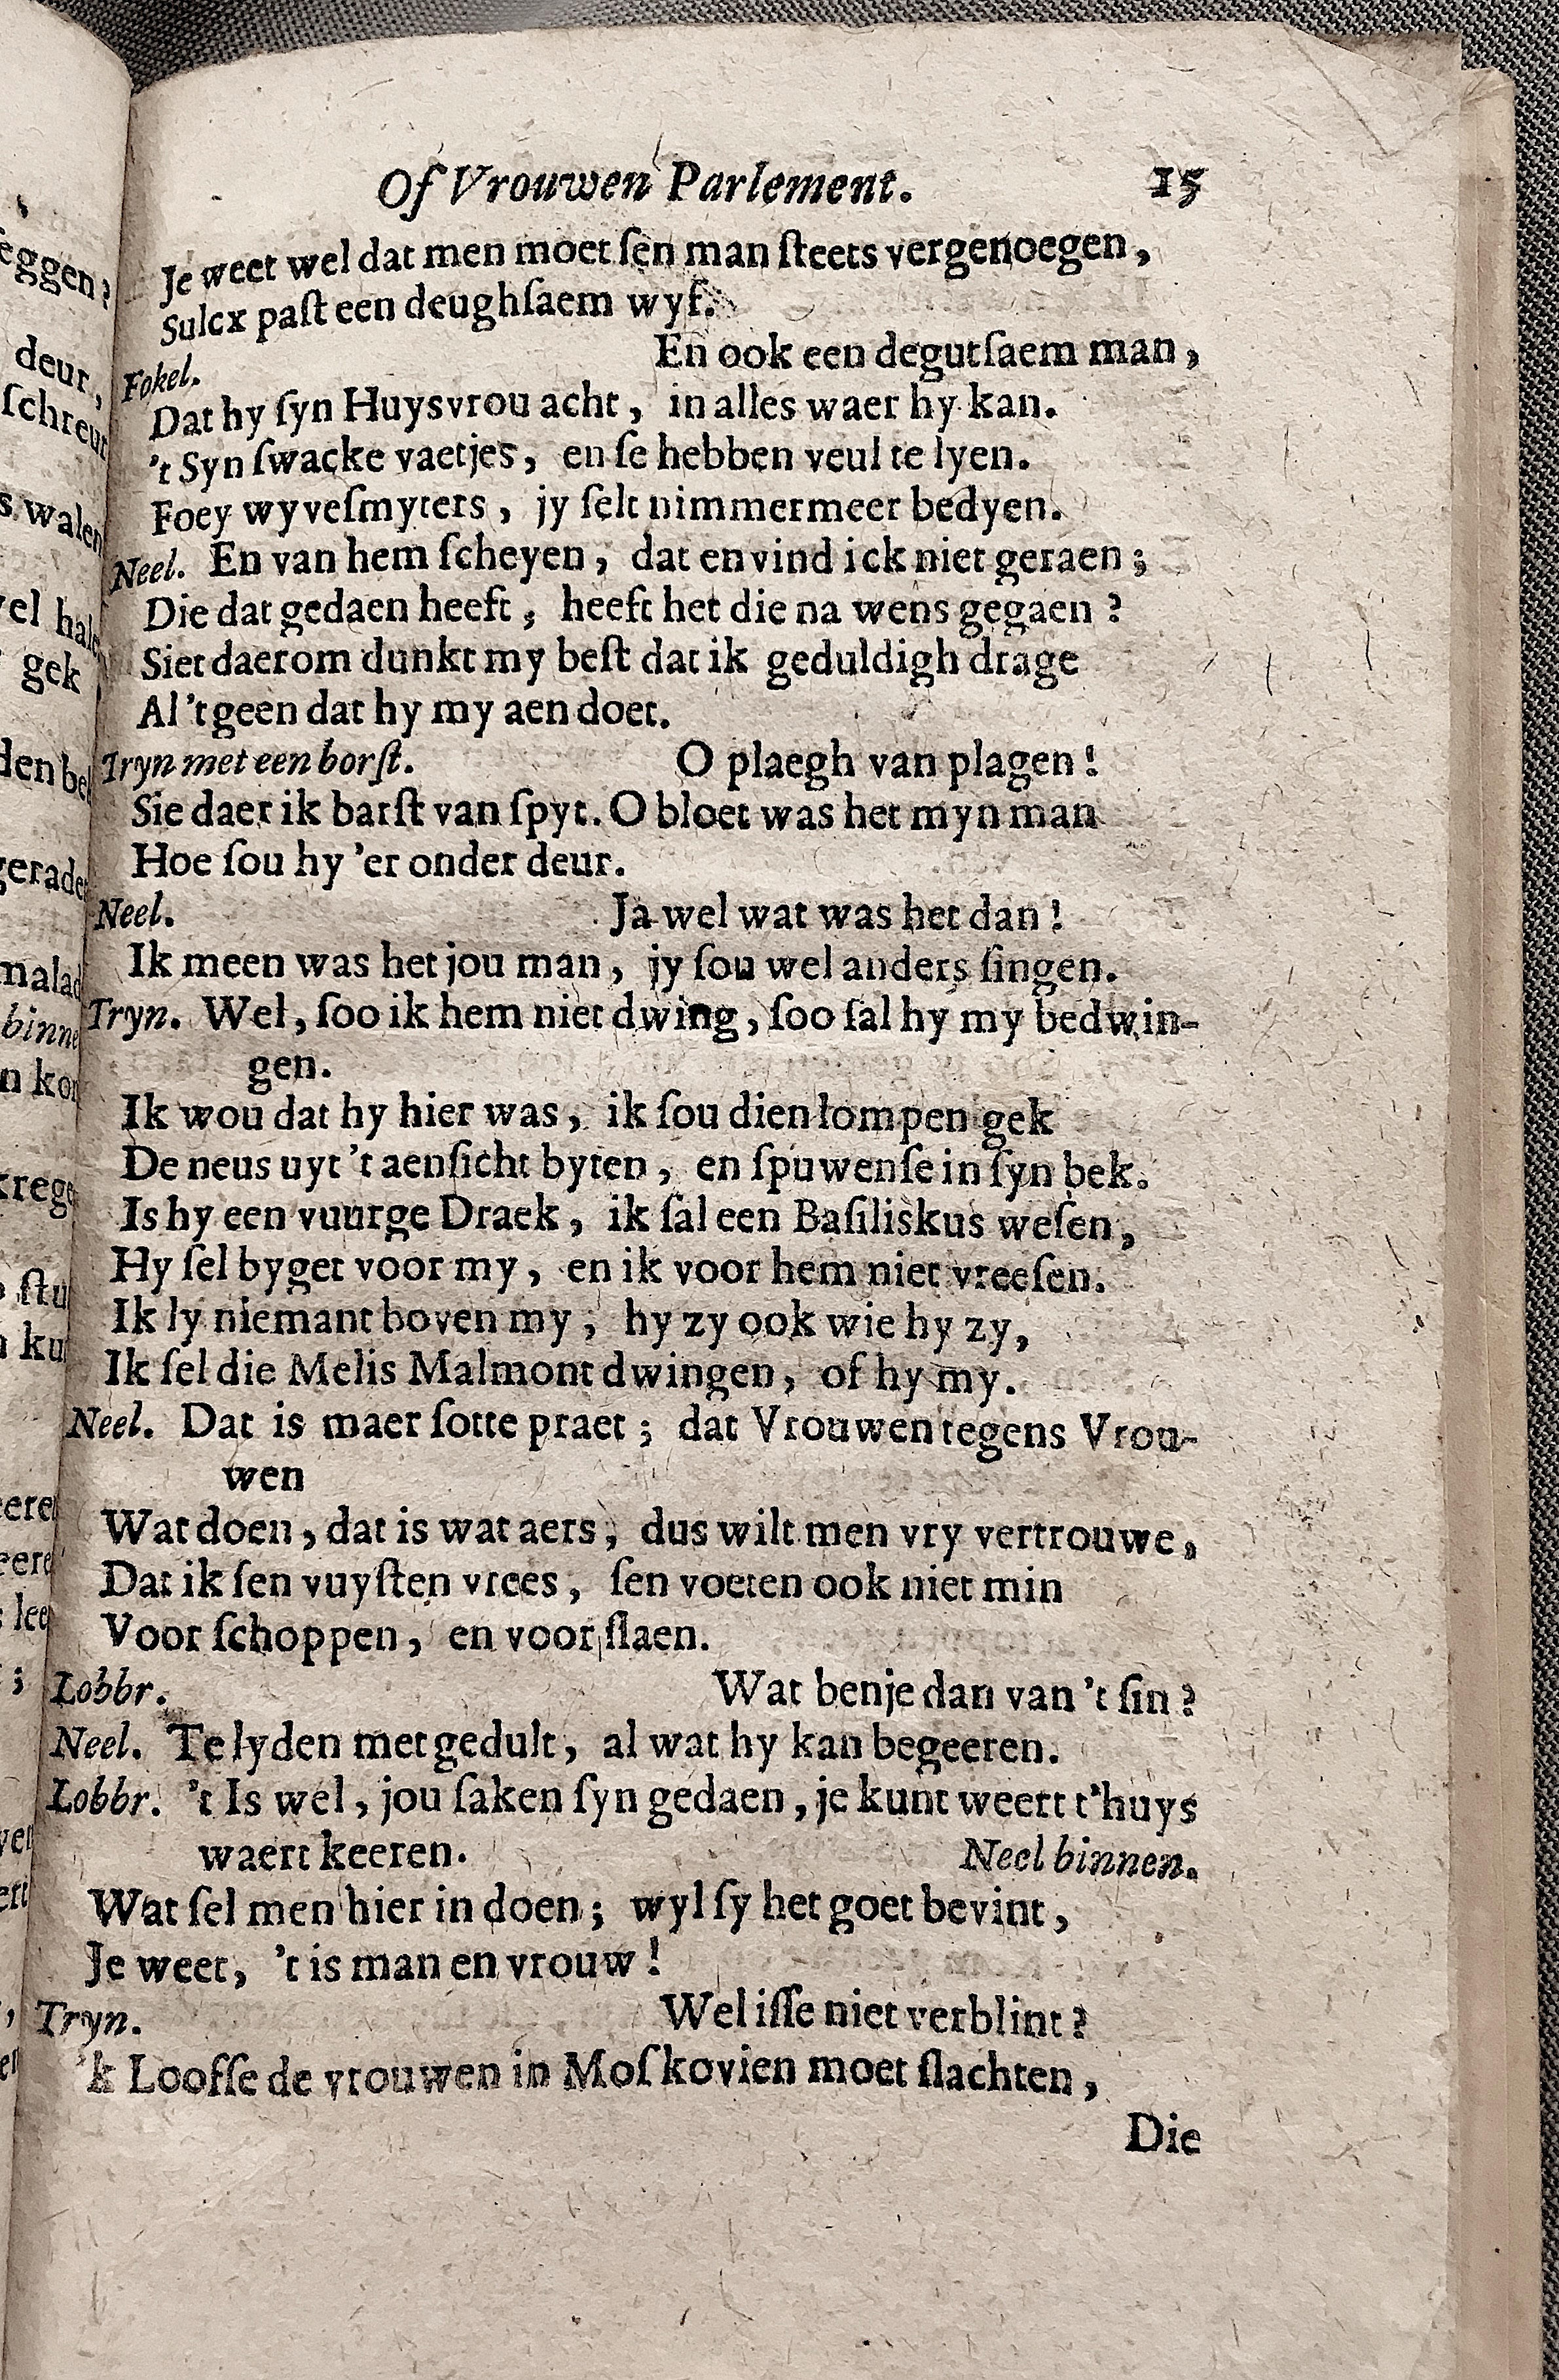 Of Vrouwen Parlement. 15
Je weet wel dat men moet ſen man ſteets vergenoegen,
Sulcx paſt een deughſaem wyf.
Fokel. En ook een degutſaem man,
Dat hy ſyn Huysvrou acht, in alles waer hy kan.
't Syn ſwacke vaetjes, en ſe hebben veul te lyen.
Foey wyveſmyters, jy ſelt nimmermeer bedyen.
Neel. En van hem ſcheyen, dat en vind ick niet geraen;
Die dat gedaen heeft, heeft het die na wens gegaen?
Siet daerom dunkt my beſt dat ik geduldigh drage
Al 't geen dat hy my aen doet.
Tryn met een borſt. O plaegh van plagen!
Sie daer ik barſt van ſpyt. O bloet was het myn man
Hoe ſou hy 'er onder deur.
Neel. Ja wel wat was het dan!
Ik meen was het jou man, jy ſou wel anders ſingen.
Tryn. Wel, ſoo ik hem niet dwing, ſoo ſal hy my bedwin-
gen.
Ik wou dat hy hier was, ik ſou dien lompen gek
De neus uyt 't aenſicht byten, en ſpuwenſe in ſyn bek.
Is hy een vuurge Draek, ik ſal een Baſiliskus weſen,
Hy ſel byget voor my, en ik voor hem niet vreeſen.
Ik ly niemant boven my; hy zy ook wie hy zy,
Ik ſel die Melis Malmont dwingen, of hy my.
Neel. Dat is maer ſotte praet; dat Vrouwen tegens Vrou-
wen
Wat doen, dat is wat aers, dus wilt men vry vertrouwe,
Dat ik ſen vuyſten vrees, ſen voeten ook niet min
Voor ſchoppen, en voor ſlaen.
Lobbr. Wat benje dan van 't ſin?
Neel. Te lyden met gedult, al wat hy kan begeeren.
Lobbr. 't Is wel, jou ſaken ſyn gedaen, je kunt weert t'huys
waert keeren. Neel binnen.
Wat ſel men hier in doen; wyl ſy het goet bevint,
Je weet, 't is man en vrouw!
Tryn. Wel iſſe niet verblint?
'k Looſſe de vrouwen in Moſkovien moet ſlachten,
Die